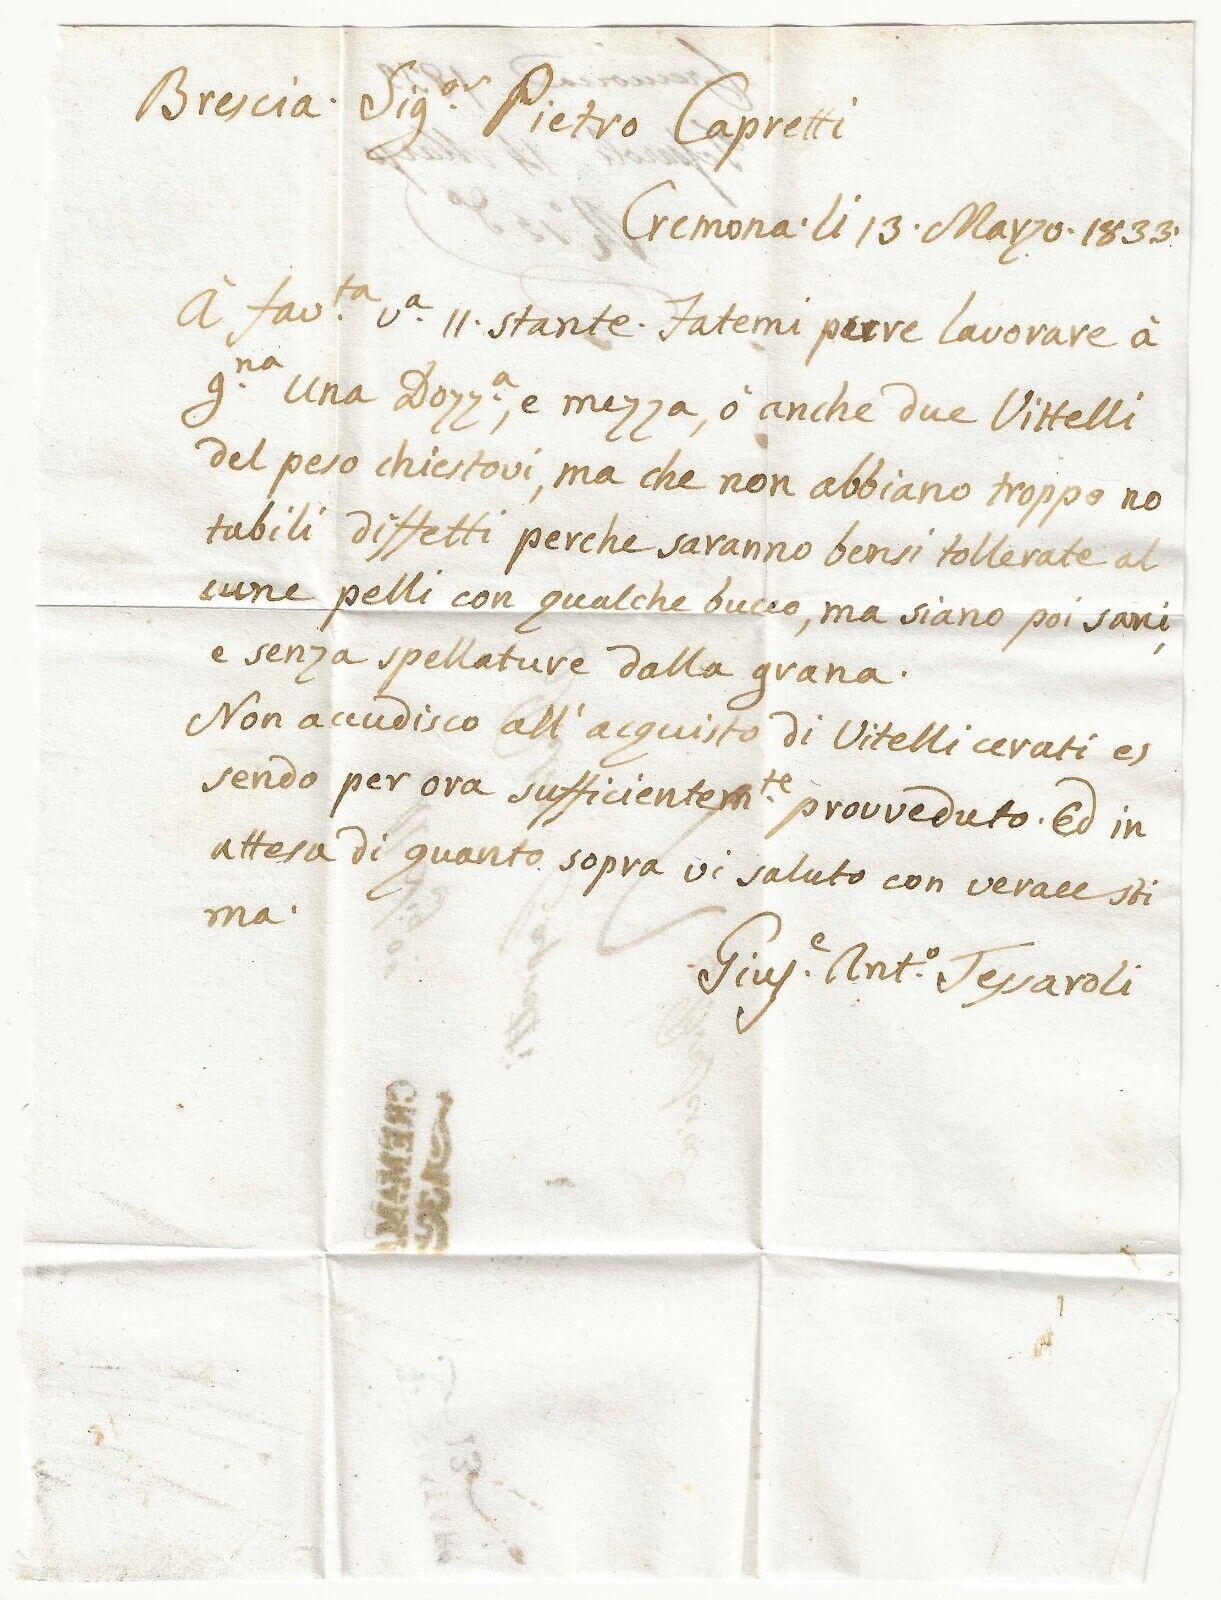 Brescia. Sig.or Pietro Capretti
Cremona. li 13. Marzo. 1833.
À fav.ta v.a 11. stante. Fatemi purre lavorare à
g.na una Dozz.a, e mezza, ò anche due Vittelli
del peso chiestovi, ma che non abbiano troppo no
tabili diffetti perche saranno bensi tollerate al
cune pelli con qualche bucco, ma siano poi sani,
e senza spellature dalla grana.
Non accudisco all'acquisto di Vitelli cerati es
sendo per ora sufficientem.te provveduto. Ed in
attesa di quanto sopra vi saluto con verace sti
ma.
Gius.e Ant.o Tessaroli
CREMA